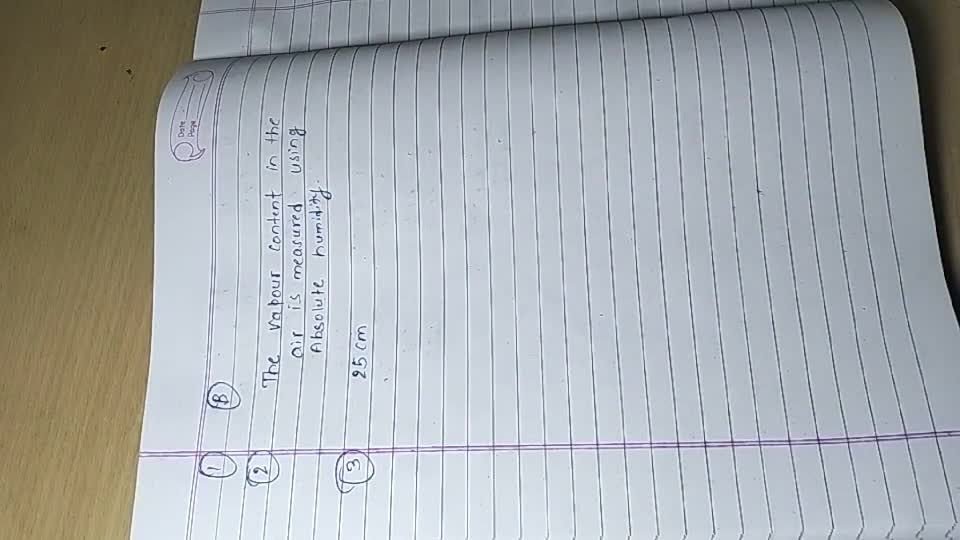 Date
Page
1 B
2 The vapour content in the
air is measured using
Absolute humidity.
3 25 cm